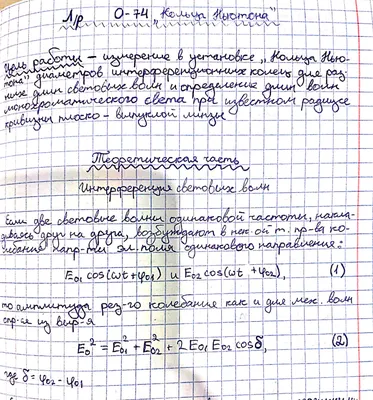 Л/р О-74 „Кольца Ньютона"
Цель работы – измерение в установке „Кольца Нью-
тона" диаметров интерференционных колец для раз-
ных длин световых волн и определение длин волн
монохроматического света при известном радиусе
кривизны плоско-выпуклой линзы
Теоретическая часть
Интерференция световых волн
Если две световые волны одинаковой частоты, накла-
дываясь друг на друга, возбуждают в нек-ой т. пр-ва ко-
лебания напр-ти эл. поля одинакового направления:
E01 cos(ωt+φ01) и E02 cos(ωt+φ02), (1)
то амплитуда рез-го колебания как и для мех. волн
опр-ся из выр-я
E0² = E01² + E02² + 2E01 E02 cosδ, (2)
где δ = φ02 - φ01